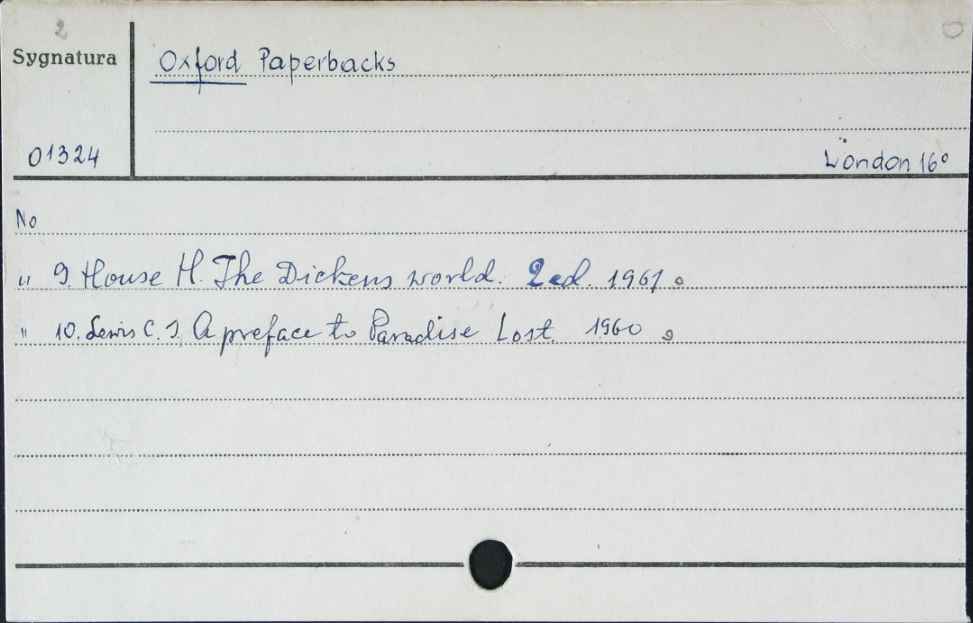 2
Sygnatura
Oxford Paperbacks
01324
London 16°
No
" 9. House H. The Dickens world. 2 ed. 1961.
" 10. Lewis C. S. A preface to Paradise Lost. 1960